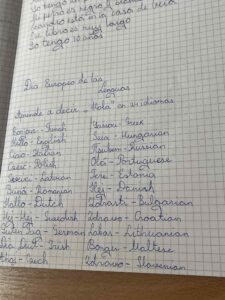 Yo tengo un
Mi perro es negro y
está en la casa de
libro es muy largo
Yo tengo 10 años
Día Europeo de las
Lenguas
Aprende a decir "Hola" en idiomas
Bonjour - French
Yassou - Greek
Hello - English
Szia - Hungarian
Ciao - Italian
- Russian
Cześć - Polish
Olá - Portuguese
- Latvian
Tere - Estonia
Bună - Romanian
Hej - Danish
Hallo - Dutch
Zdrasti - Bulgarian
Hej-Hej - Swedish
Zdravo - Croatian
Guten Tag - German
Labas - Lithuanian
Dia Duit - Irish
Bonġu - Maltese
Ahoj - Czech
Zdravo - Slovenian